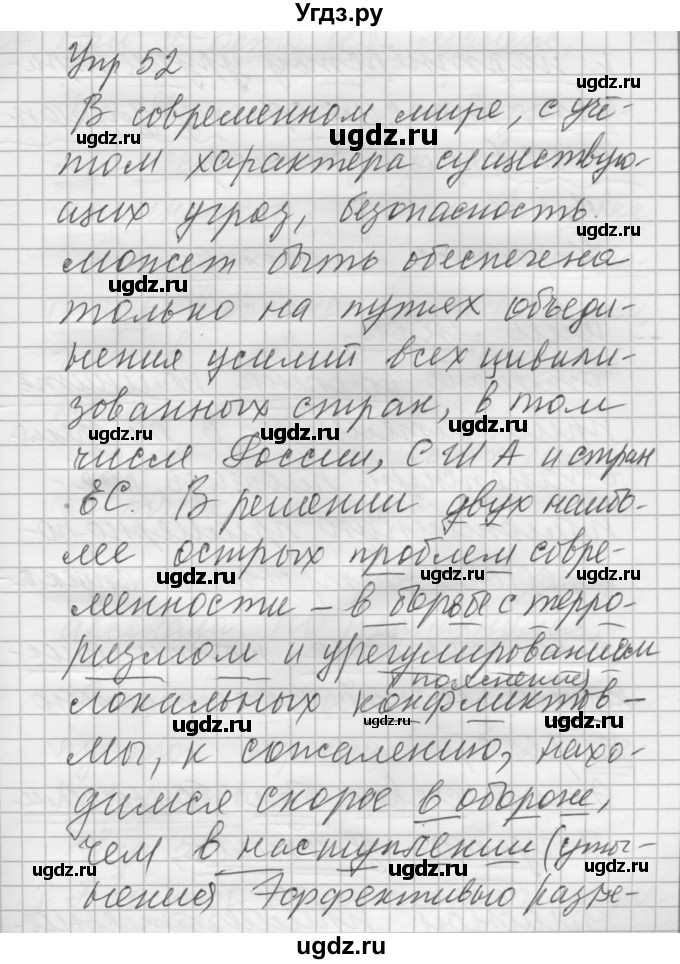 Угдз.ру
Упр 52
В современном мире, с учё-
том характера существую-
щих угроз, безопасность
может быть обеспечена
только на путях объеди-
нения усилий всех цивили-
зованных стран, в том
числе России, США и стран
ЕС. В решении двух наибо-
лее острых проблем совре-
менности – в борьбе с терро-
ризмом и урегулированием
(пояснение)
локальных конфликтов –
мы, к сожалению, нахо-
димся скорее в обороне,
чем в наступлении (уточ-
нение) Эффективно разре-
ugdz.ru